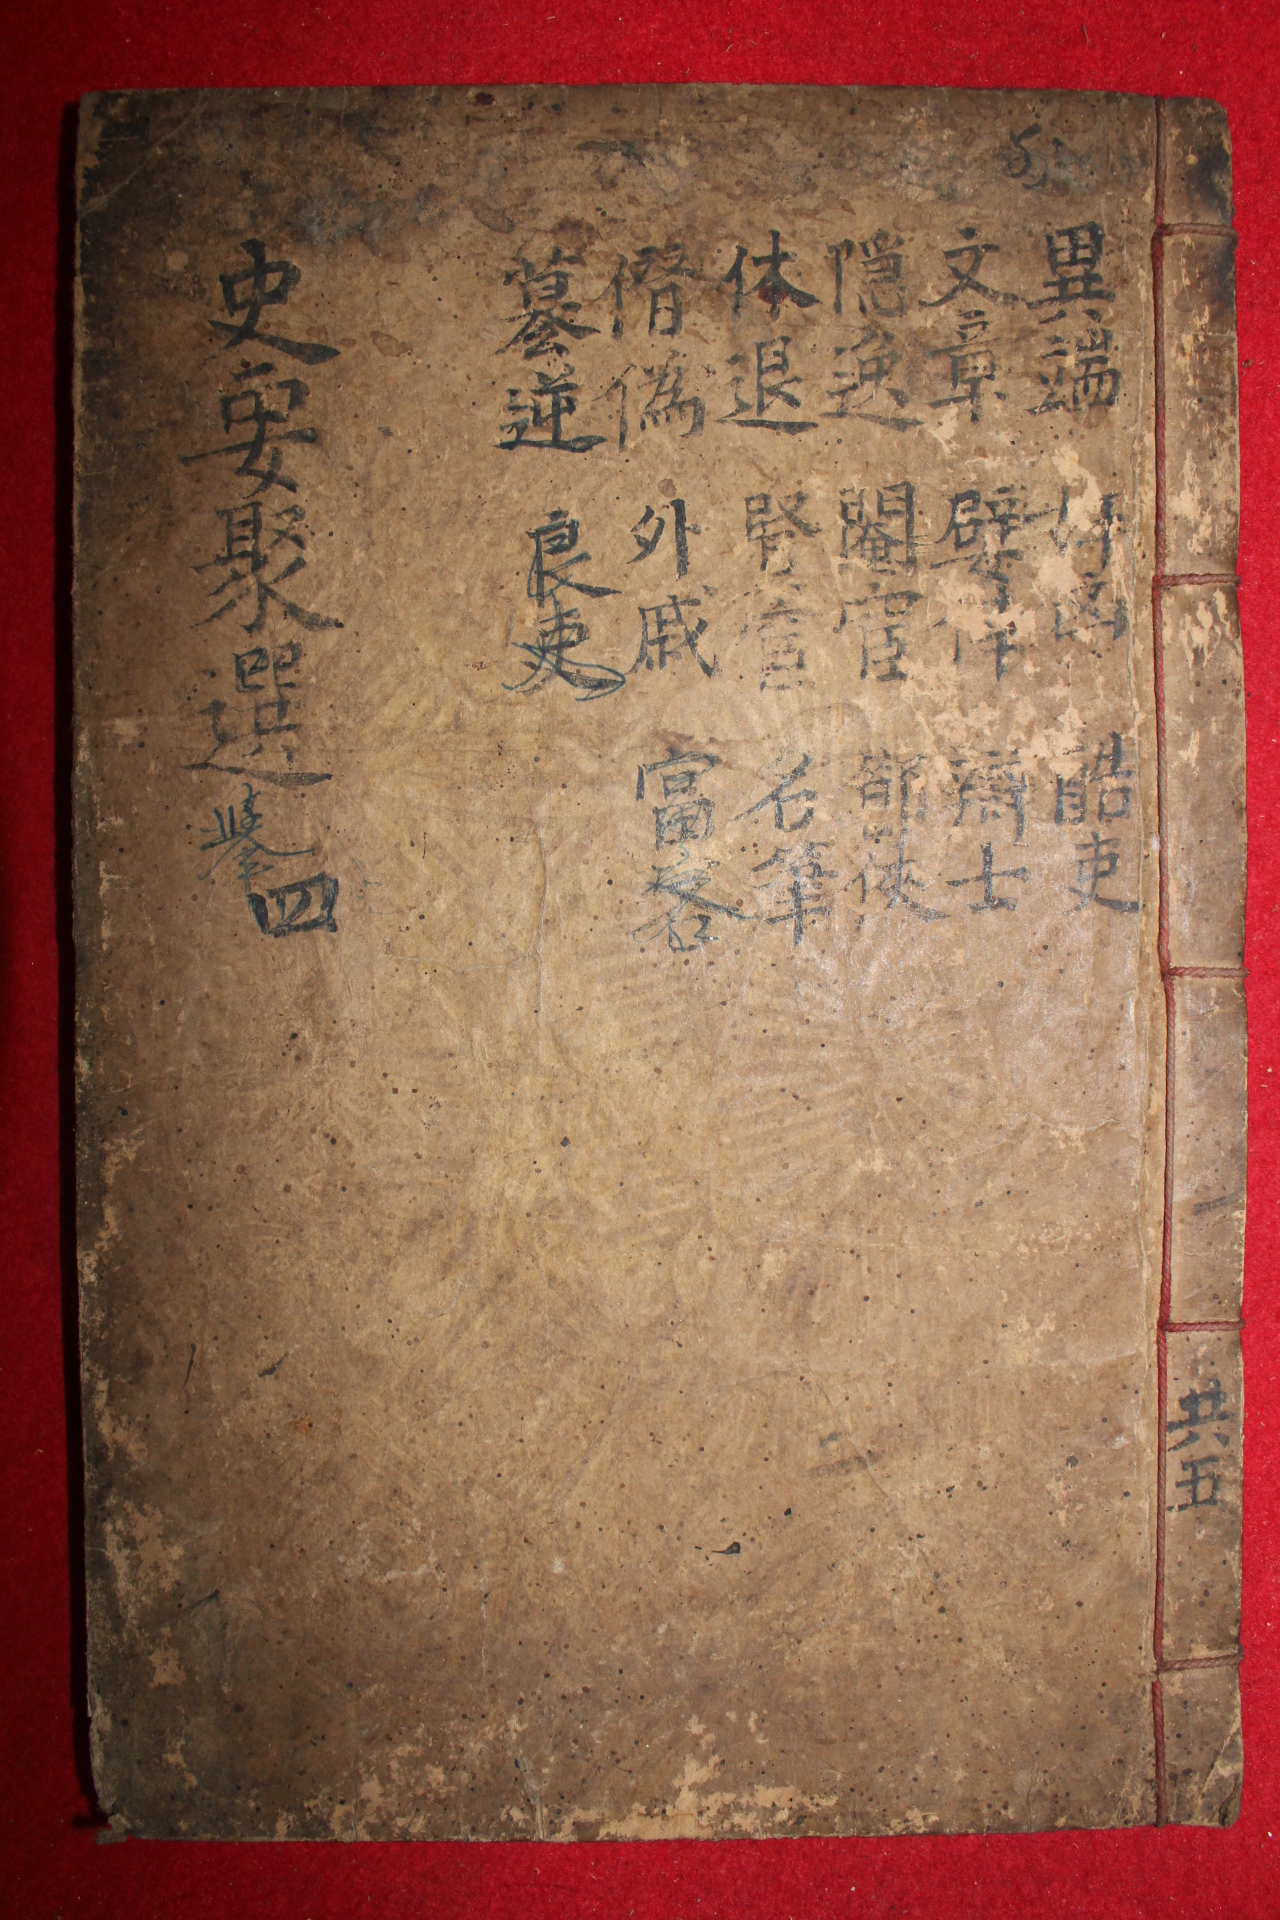 異端 酷吏
文章 嬖倖 辯士
隱逸 閹宦 節俠
休退 賢 名筆
僭僞 外戚 富客
簒逆 良吏
史要聚選 四
共五